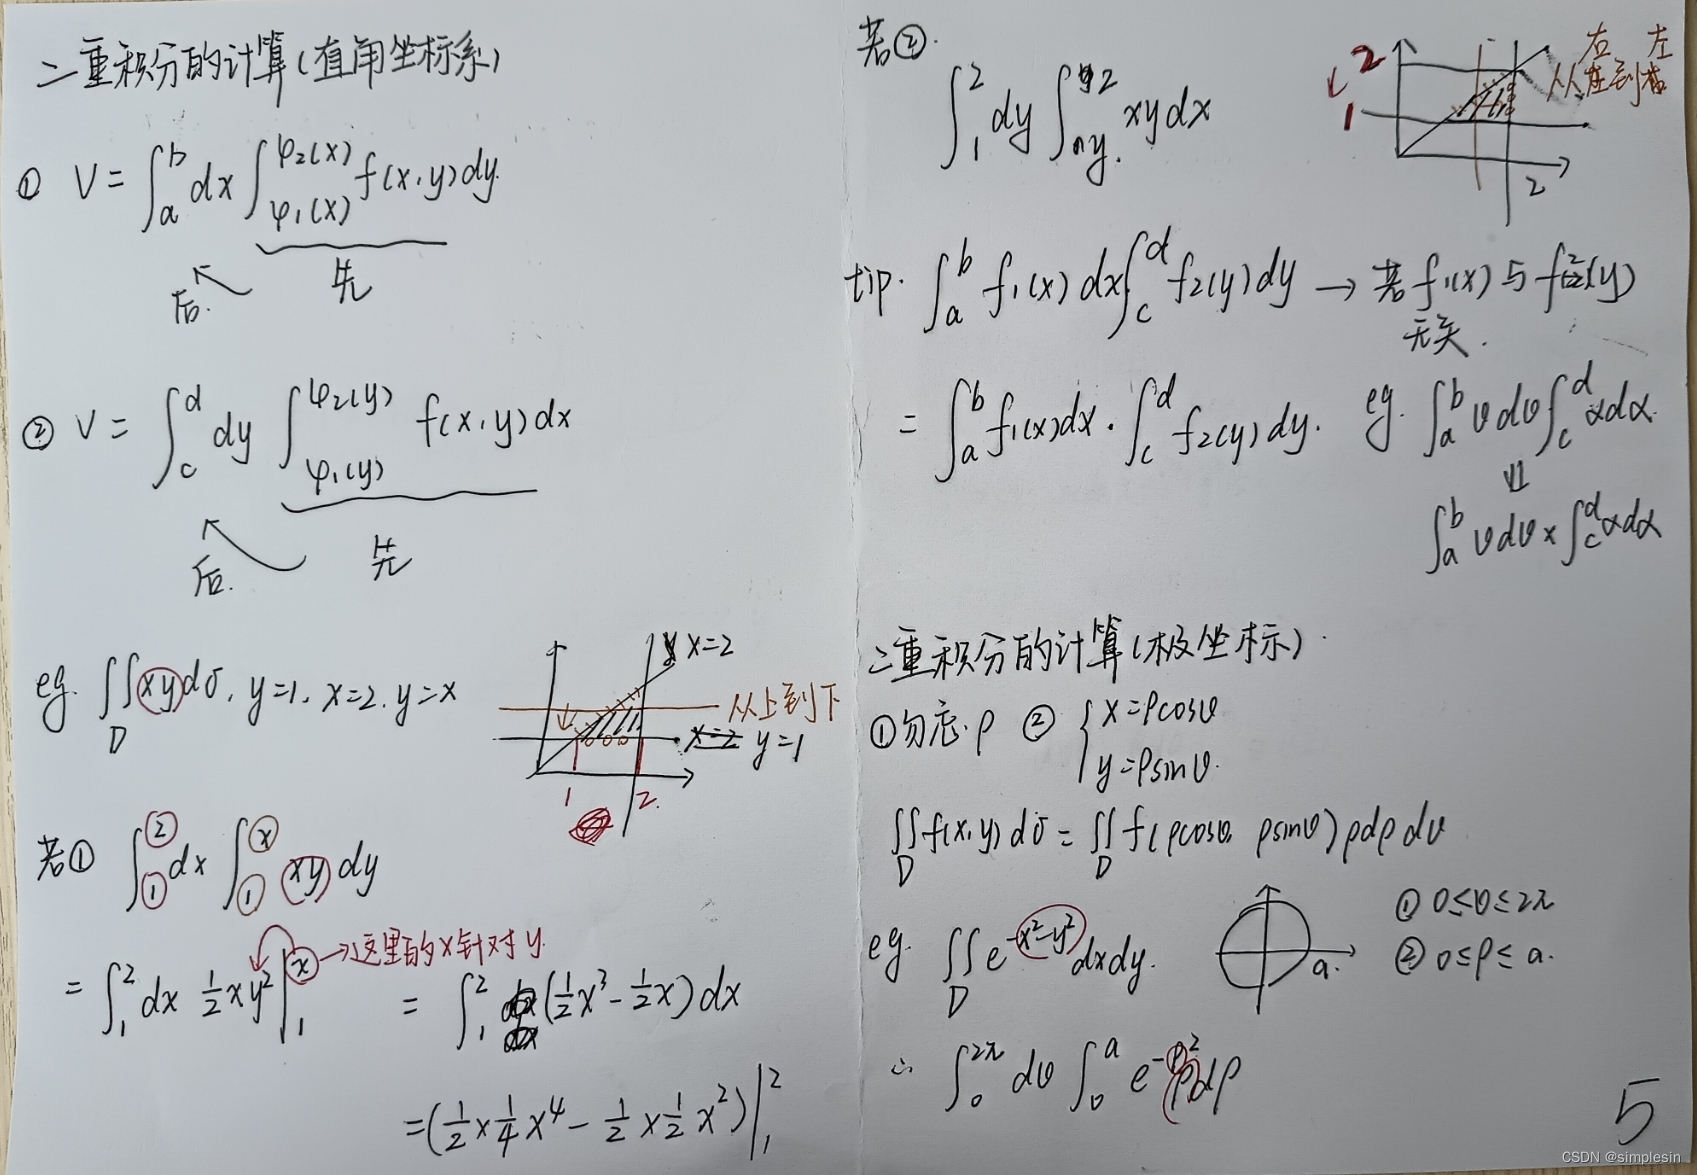 二重积分的计算(直角坐标系)
① V = ∫_a^b dx ∫_{φ1(x)}^{φ2(x)} f(x,y)dy.
后. 先
② V = ∫_c^d dy ∫_{φ1(y)}^{φ2(y)} f(x,y)dx
后. 先
eg. ∬_D xydσ. y=1. x=2. y=x
x=2
从上到下
y=1
1 2.
若① ∫_1^2 dx ∫_1^x xy dy
= ∫_1^2 dx 1/2 xy² |_1^x → 这里的x针对y.
= ∫_1^2 (1/2 x³ - 1/2 x) dx
= (1/2 × 1/4 x⁴ - 1/2 × 1/2 x²) |_1^2
若②.
∫_1^2 dy ∫_y^2 xydx
2
1
2
右 左
从到
tip. ∫_a^b f1(x) dx ∫_c^d f2(y)dy → 若f1(x)与f2(y)
无关.
= ∫_a^b f1(x)dx · ∫_c^d f2(y)dy. eg. ∫_a^b θdθ ∫_c^d αdα.
⇓
∫_a^b θdθ × ∫_c^d αdα
二重积分的计算(极坐标).
①勿忘.ρ ② { x=ρcosθ
y=ρsinθ.
∬_D f(x,y)dσ = ∬_D f(ρcosθ, ρsinθ)ρdρdθ
eg. ∬_D e^{-x²-y²} dxdy.
a.
① 0≤θ≤2π
② 0≤ρ≤a.
∴ ∫_0^{2π} dθ ∫_0^a e^{-ρ²} ρdρ
5
CSDN @simplesin